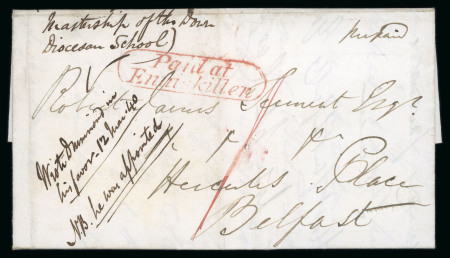 Mastership of the Down
Diocesan School)
Prepaid
Paid at
Enniskillen
Robert James Tennent Esqr
Hercules Place
Belfast
With Drummond in
his favor. 12 Mar 40
N.B. he was appointed
1